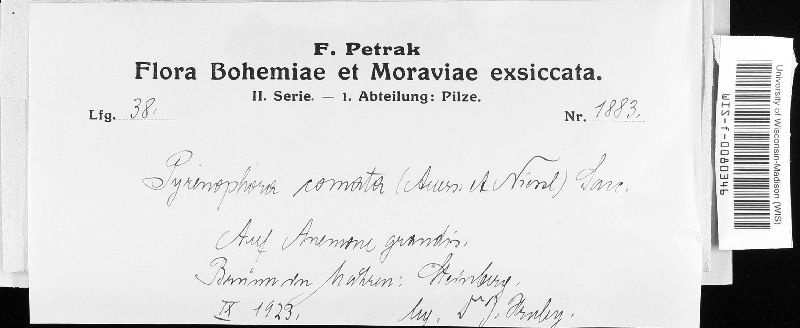 F. Petrak
Flora Bohemiae et Moraviae exsiccata.
II. Serie. — 1. Abteilung: Pilze.
Lfg. 38. Nr. 1883.
Pyrenophora comata (Auers et Niessl) Sacc.
Auf Anemone grandis.
Brünn in Mähren: Steinberg.
IX 1923. leg. Dr J. Hruby.
University of Wisconsin-Madison (WIS)
WIS-f-0080346